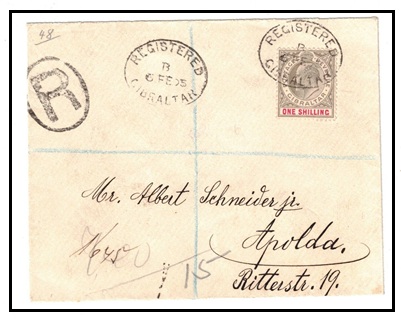 48
REGISTERED
B
6 FE 05
GIBRALTAR
REGISTERED
B
GIBRALTAR
R
GIBRALTAR
ONE SHILLING
Mr. Albert Schneider jr.
Apolda.
Ritterstr. 19.
15